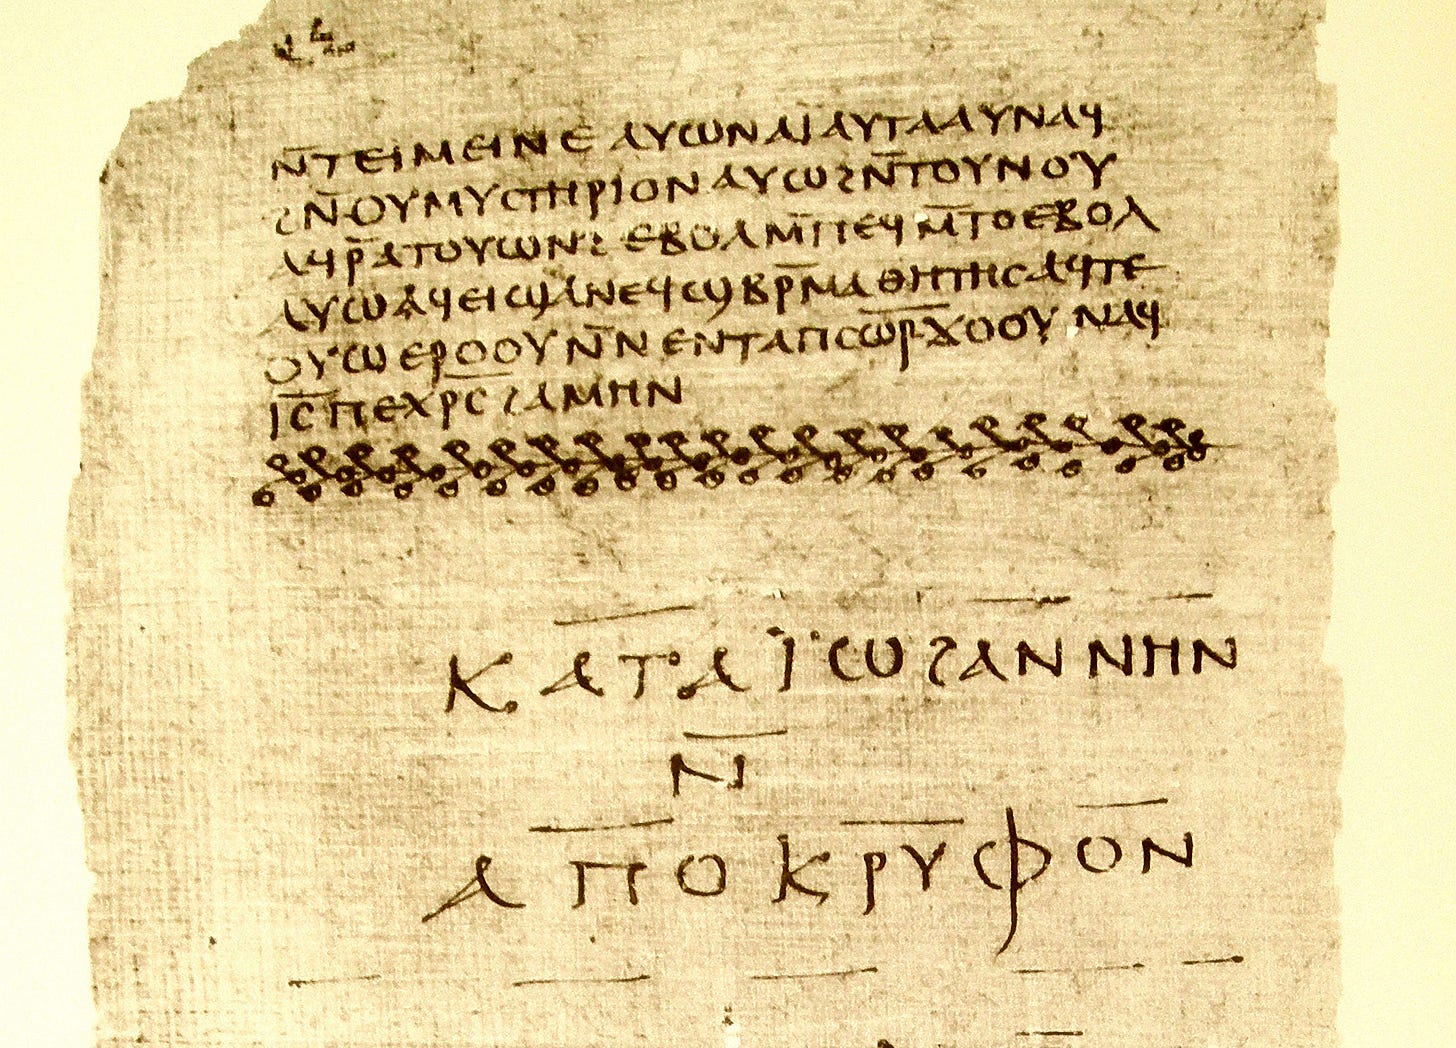 ⲛ̄ⲧⲉⲓⲙⲉⲓⲛⲉ ⲁⲩⲱ ⲛⲁⲓ̈ ⲁⲩⲧⲁⲁⲩ ⲛⲁϥ
ϩⲛ̄ ⲟⲩⲙⲩⲥⲧⲏⲣⲓⲟⲛ ⲁⲩⲱ ϩⲛ̄ ⲧⲟⲩⲛⲟⲩ
ⲁϥⲣ̄ ⲁⲧⲟⲩⲱⲛϩ ⲉⲃⲟⲗ ⲙ̄ⲡⲉϥⲙ̄ⲧⲟ ⲉⲃⲟⲗ
ⲁⲩⲱ ⲁϥⲉⲓ ϣⲁ ⲛⲉϥϣⲃⲣ̄ⲙⲁⲑⲏⲧⲏⲥ ⲁϥⲧⲉ
ⲟⲩⲱ ⲉⲣⲟⲟⲩ ⲛ̄ⲛⲉⲛⲧⲁ ⲡⲥⲱ̅ⲣ̅ ϫⲟⲟⲩ ⲛⲁϥ
ⲓ̅ⲥ̅ ⲡⲉⲭⲣ̅ⲥ̅ ϩⲁⲙⲏⲛ
ⲕⲁⲧⲁ ⲓ̈ⲱϩⲁⲛⲛⲏⲛ
ⲛ̄
ⲁⲡⲟⲕⲣⲩⲫⲟⲛ